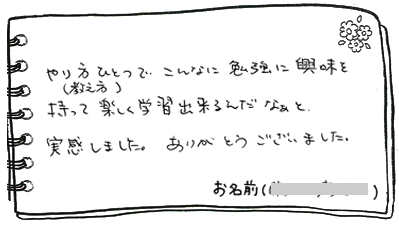 やり方ひとつで こんなに 勉強に 興味を
(教え方)
持って 楽しく 学習出来るんだ なぁと、
実感しました。 ありがとう ございました。
お名前( )